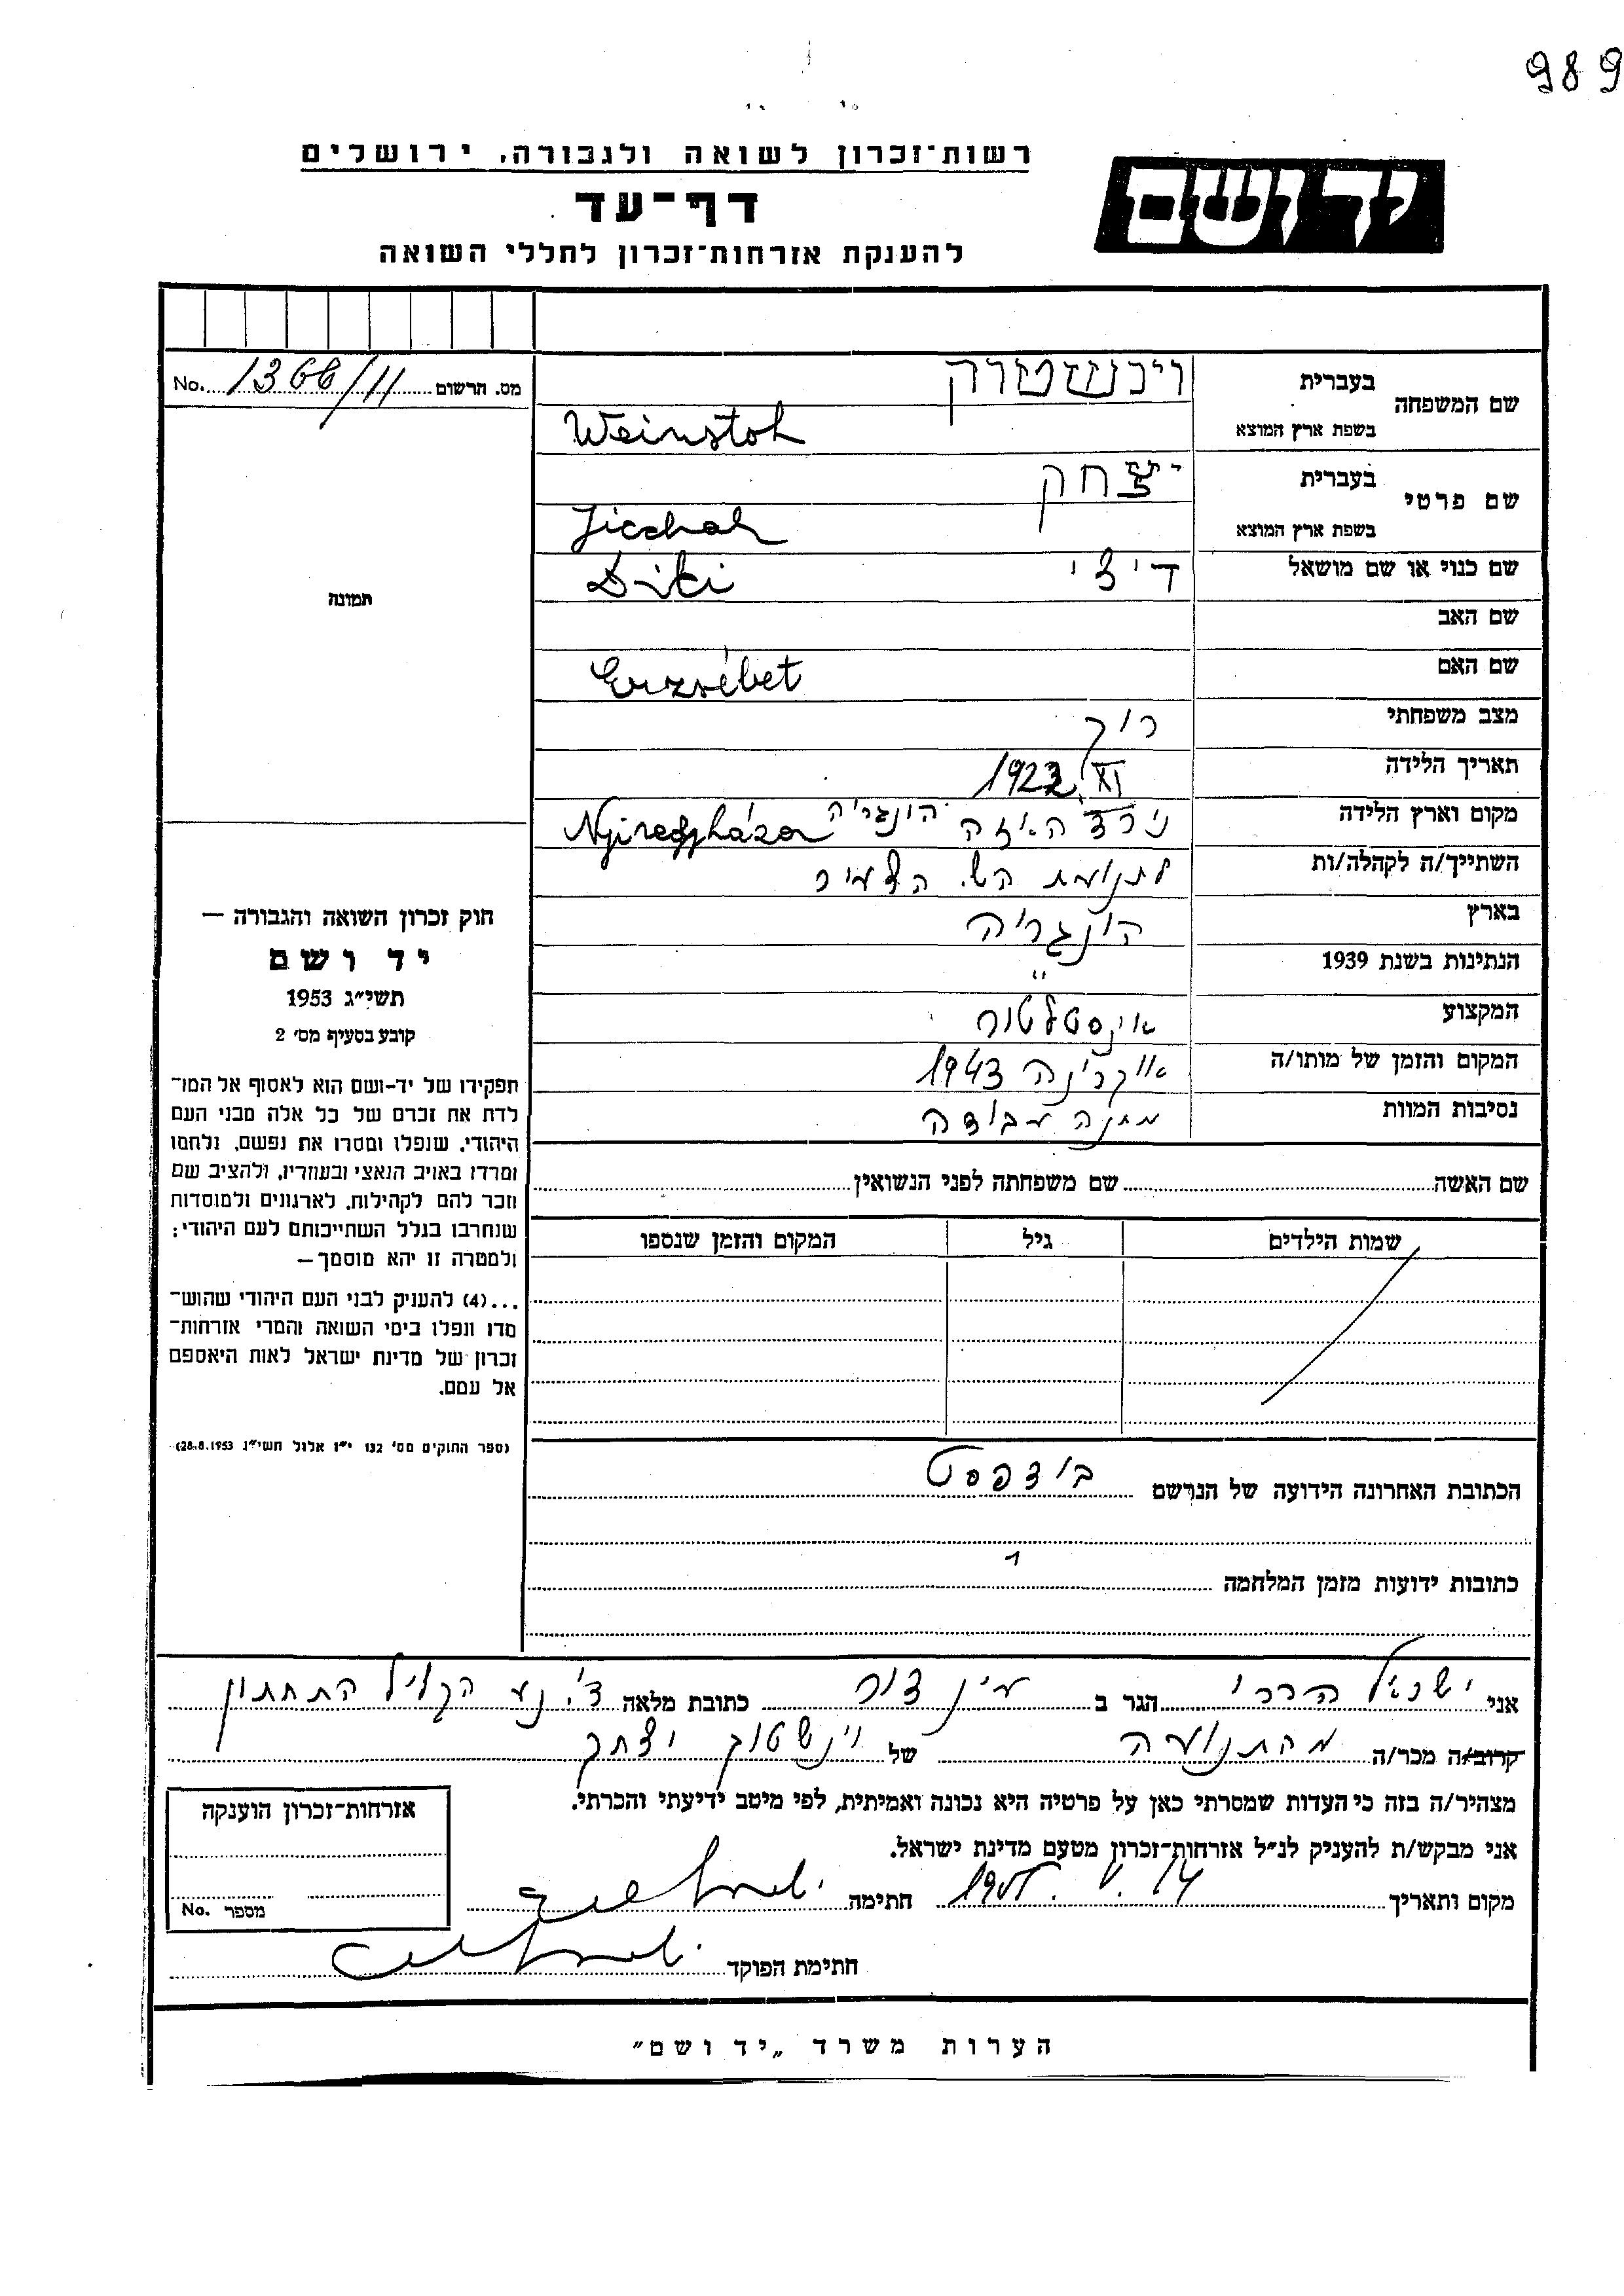 989
רשות-זכרון לשואה ולגבורה, ירושלים
יד ושם
דף-עד
להענקת אזרחות-זכרון לחללי השואה
מס. הרשום No. 1366/11
שם המשפחה בעברית ויינשטוק
בשפת ארץ המוצא Weinstok
שם פרטי בעברית יצחק
בשפת ארץ המוצא Jicchak
שם כנוי או שם מושאל דיצי Diki
שם האב
שם האם Erzsébet
מצב משפחתי רווק
תאריך הלידה XI 1922
מקום וארץ הלידה הונגריה Nyiregyháza
השתייך/ה לקהלה/ות לתנועת הש. הצעיר
בארץ הונגריה
הנתינות בשנת 1939 "
המקצוע אינסטלטור
המקום והזמן של מותו/ה אוקרינה 1943
נסיבות המוות מחנה עבודה
תמונה
חוק זכרון השואה והגבורה —
יד ושם
תשי״ג 1953
קובע בסעיף מס׳ 2
תפקידו של יד-ושם הוא לאסוף אל המו־
לדת את זכרם של כל אלה מבני העם
היהודי, שנפלו ומסרו את נפשם, נלחמו
ומרדו באויב הנאצי ובעוזריו, ולהציב שם
וזכר להם לקהילות, לארגונים ולמוסדות
שנחרבו בגלל השתייכותם לעם היהודי;
ולמטרה זו יהא מוסמך—
...(4) להעניק לבני העם היהודי שהוש־
מדו ונפלו בימי השואה והמרי אזרחות־
זכרון של מדינת ישראל לאות היאספם
אל עמם.
(ספר החוקים מס׳ 132 י״ז אלול תשי״ג 28.8.1953)
שם האשה שם משפחתה לפני הנשואין
שמות הילדים גיל המקום והזמן שנספו
הכתובת האחרונה הידועה של הנרשם בודפסט
כתובות ידועות מזמן המלחמה
אני ישראל הררי הגר ב עין דור כתובת מלאה ד.נע הגליל התחתון
קרוב/ה מכר/ה מהתנועה של ויינשטוק יצחק
מצהיר/ה בזה כי העדות שמסרתי כאן על פרטיה היא נכונה ואמיתית, לפי מיטב ידיעתי והכרתי.
אני מבקש/ת להעניק לנ״ל אזרחות-זכרון מטעם מדינת ישראל.
מקום ותאריך 14. V. חתימה
חתימת הפוקד
אזרחות-זכרון הוענקה
מספר No.
הערות משרד „יד ושם״